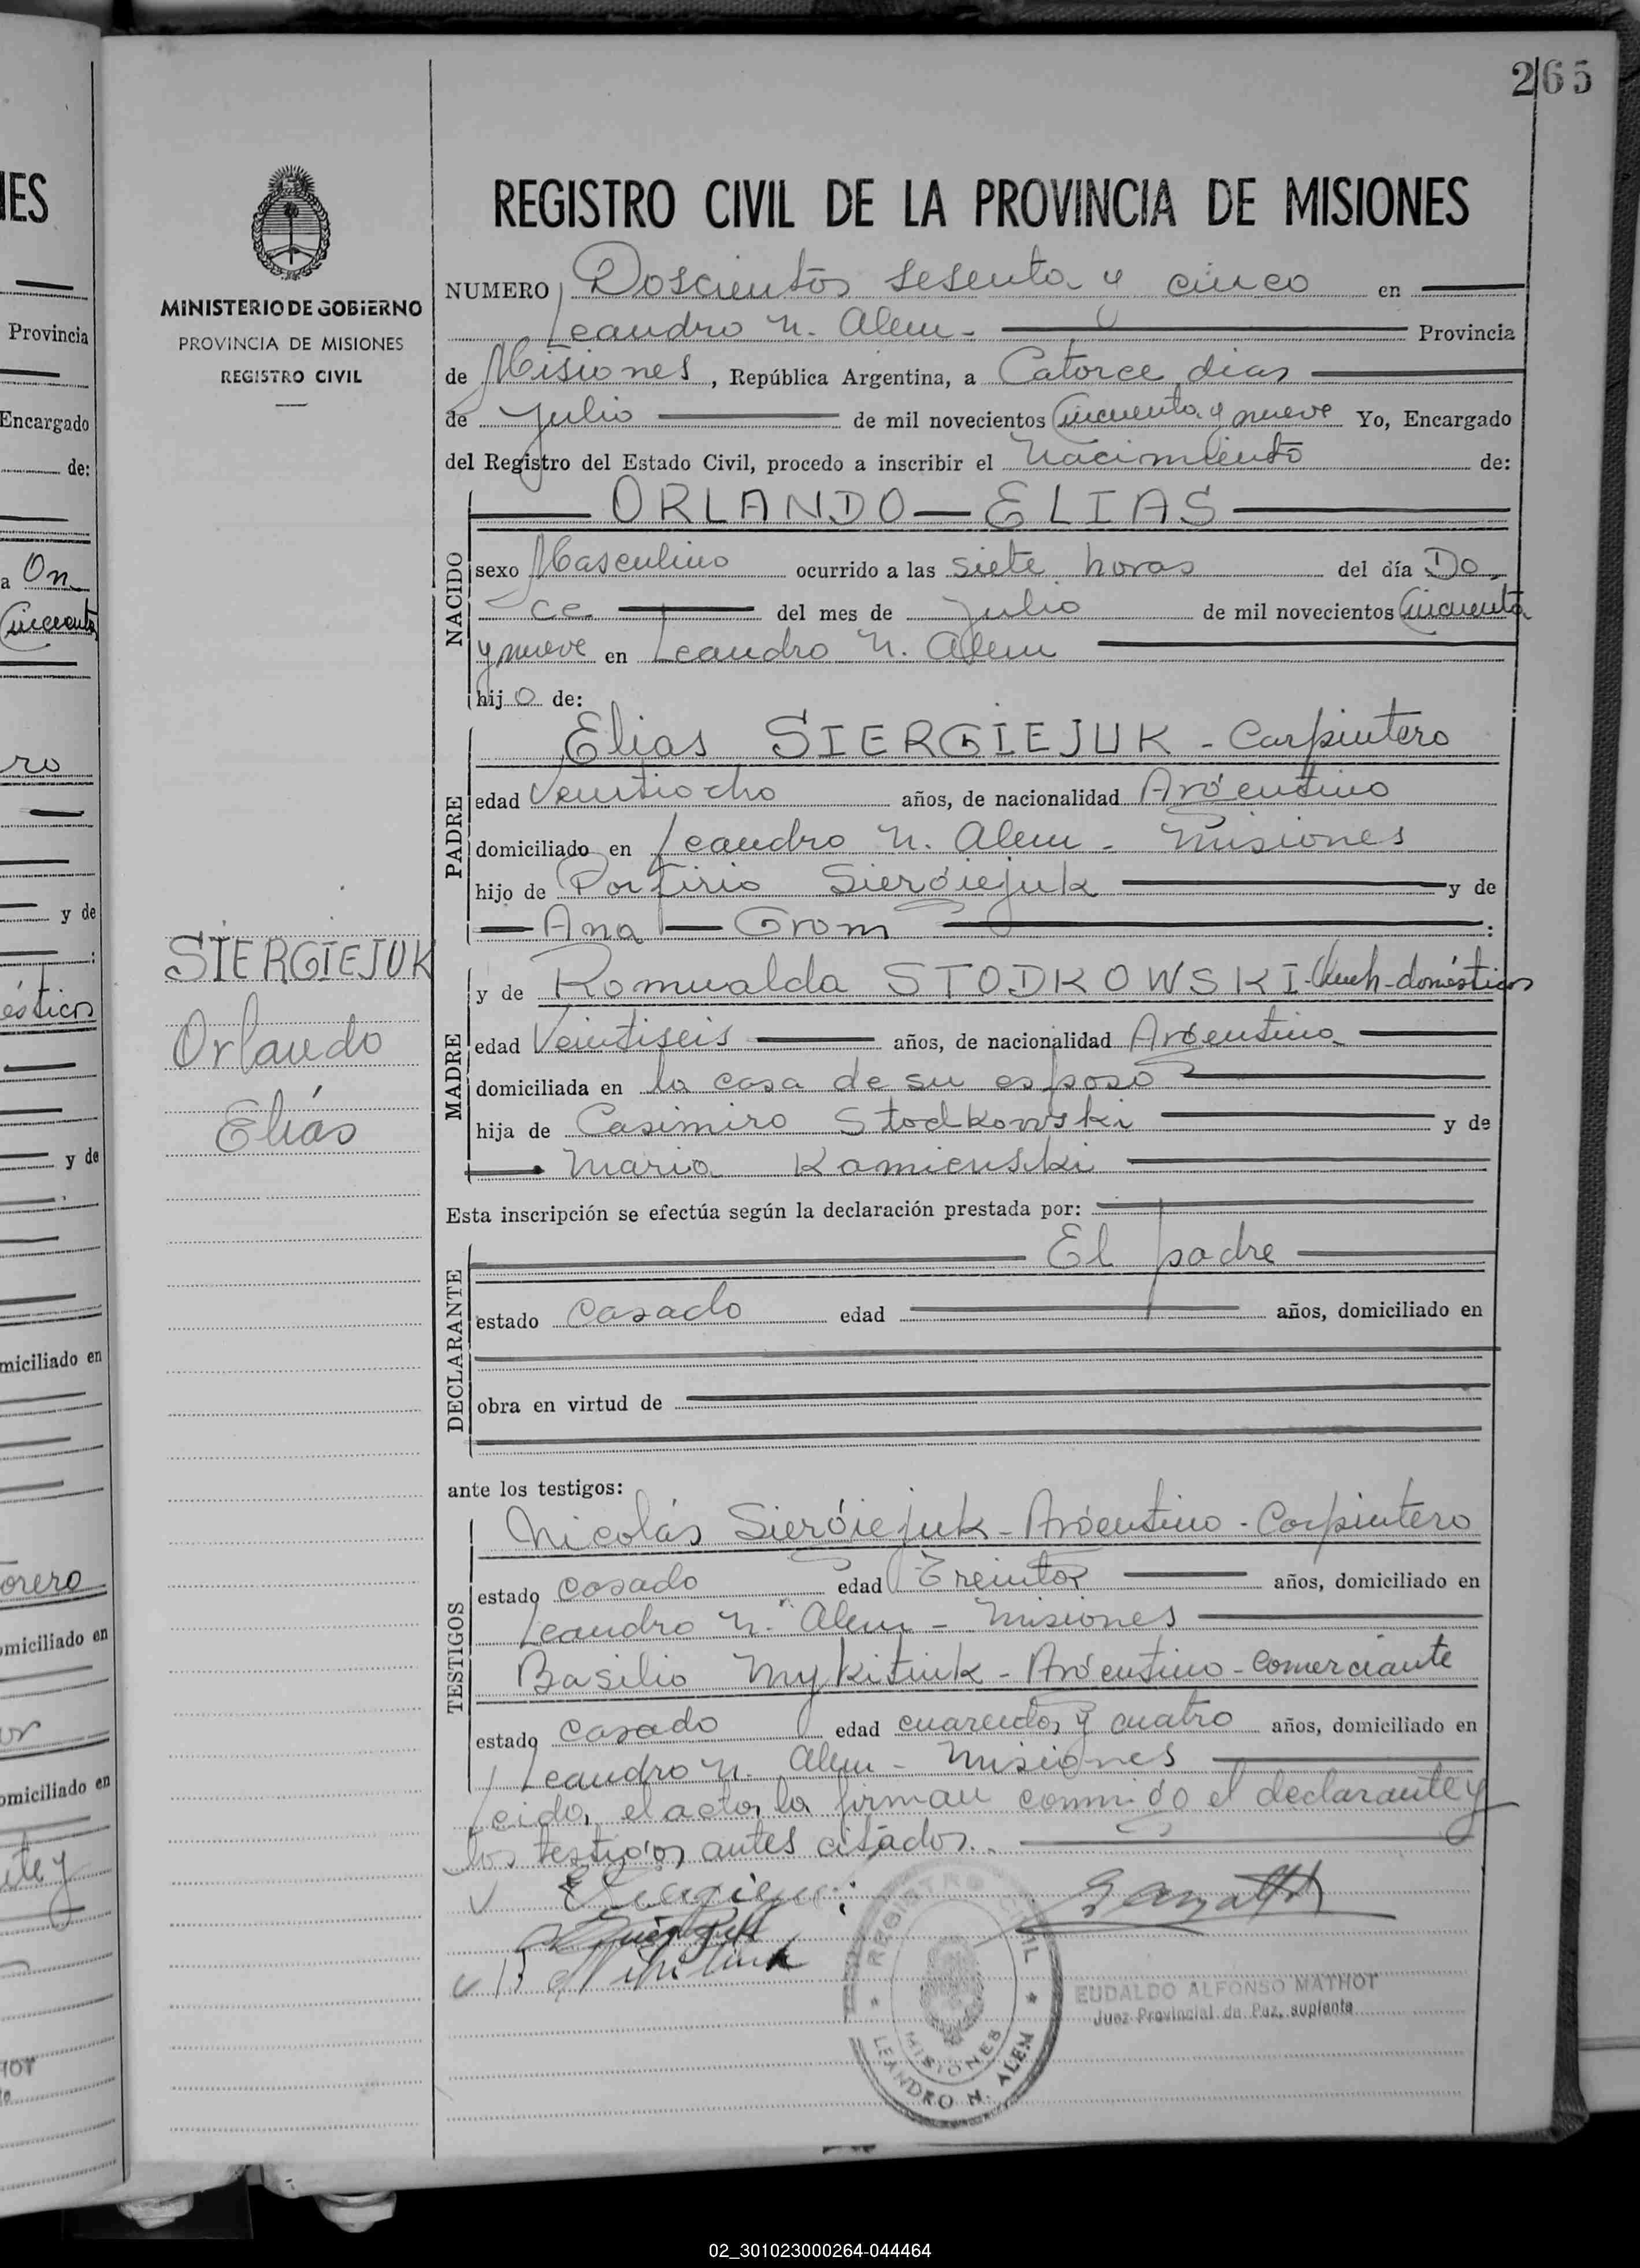 265
REGISTRO CIVIL DE LA PROVINCIA DE MISIONES
MINISTERIO DE GOBIERNO
PROVINCIA DE MISIONES
REGISTRO CIVIL
SIERGIEJUK
Orlando
Elías
NUMERO Doscientos sesenta y cinco en
Leandro N. Alem. Provincia
de Misiones, República Argentina, a Catorce dias
de Julio de mil novecientos Cincuenta y nueve Yo, Encargado
del Registro del Estado Civil, procedo a inscribir el Nacimiento de:
NACIDO
ORLANDO — ELIAS
sexo Masculino ocurrido a las siete horas del día Do-
ce del mes de Julio de mil novecientos Cincuenta
y nueve en Leandro N. Alem
hijo de:
PADRE
Elias SIERGIEJUK - Carpintero
edad Veintiocho años, de nacionalidad Argentino
domiciliado en Leandro N. Alem - Misiones
hijo de Porfirio Siergiejuk y de
Ana Grom :
MADRE
y de Romualda STODKOWSKI - domésticos
edad Veintiseis años, de nacionalidad Argentina
domiciliada en la casa de su esposo
hija de Casimiro Stodkowski y de
Maria Kamienski
Esta inscripción se efectúa según la declaración prestada por:
DECLARANTE
El padre
estado casado edad años, domiciliado en
obra en virtud de
ante los testigos:
TESTIGOS
Nicolás Siergiejuk - Argentino - Carpintero
estado casado edad Treinta años, domiciliado en
Leandro N. Alem - Misiones
Basilio Mykitiuk - Argentino - comerciante
estado casado edad cuarenta y cuatro años, domiciliado en
Leandro N. Alem - Misiones
Leida el acta, la firman conmigo el declarante y
los testigos antes citados.
REGISTRO CIVIL
MISIONES
LEANDRO N. ALEM
EUDALDO ALFONSO MATHOT
Juez Provincial de Paz, suplente
02_301023000264-044464